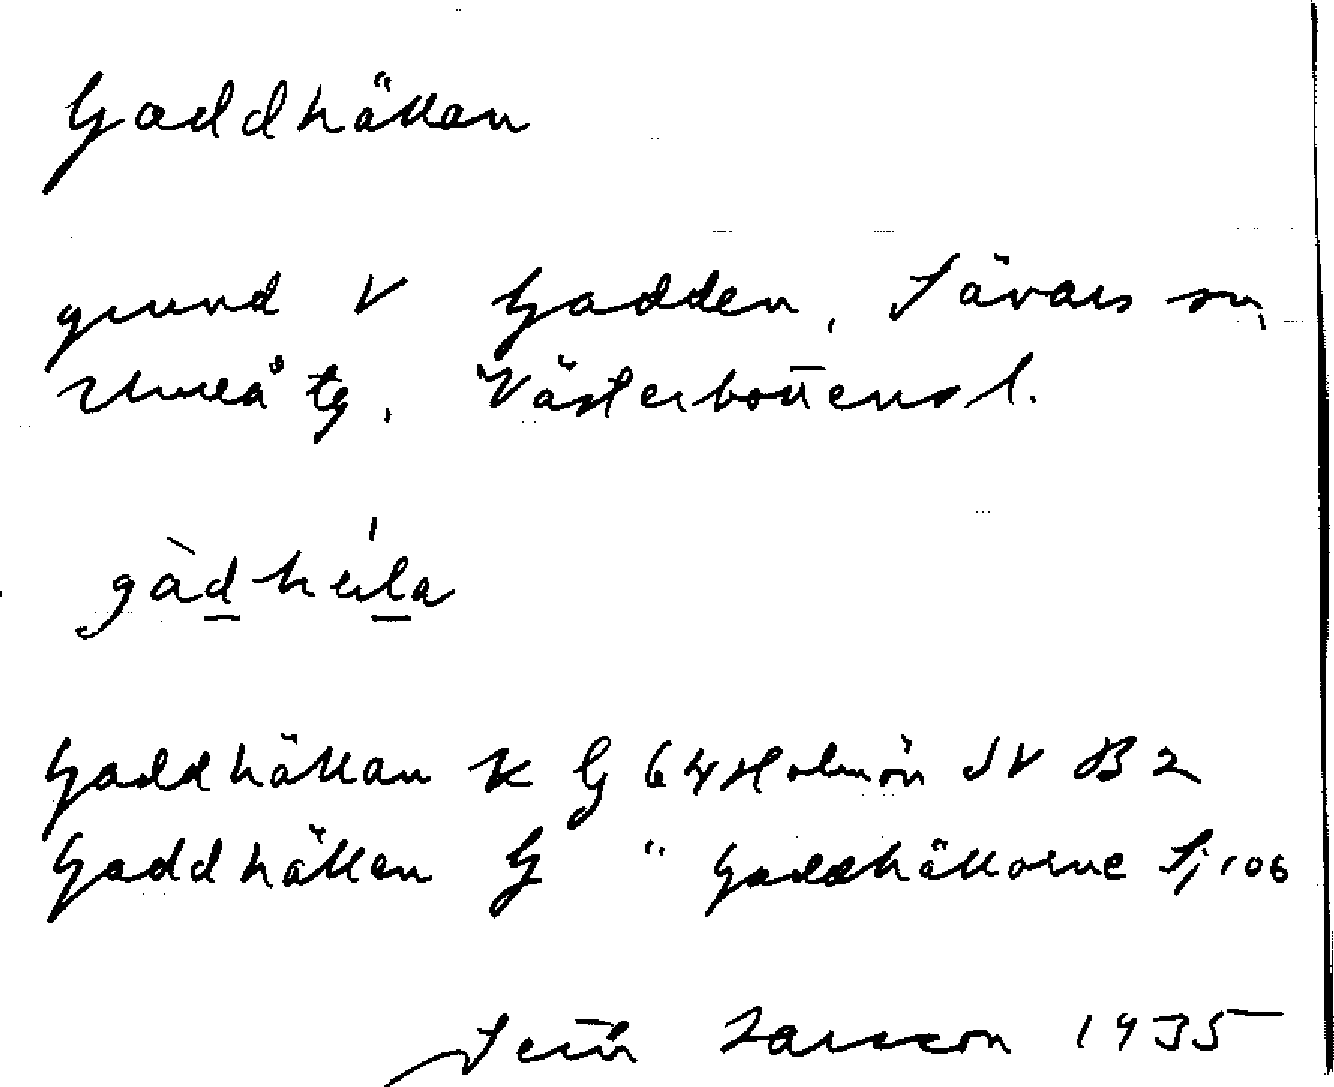 Gaddhällan
grund V Gadden, Sävars sn,
Umeå tg, Västerbottens l.
gàdhéla
Gaddhällan K G 64 Holmön SV B2
Gaddhällan G " Gaddhällorne Sj 106
Larsson 1935